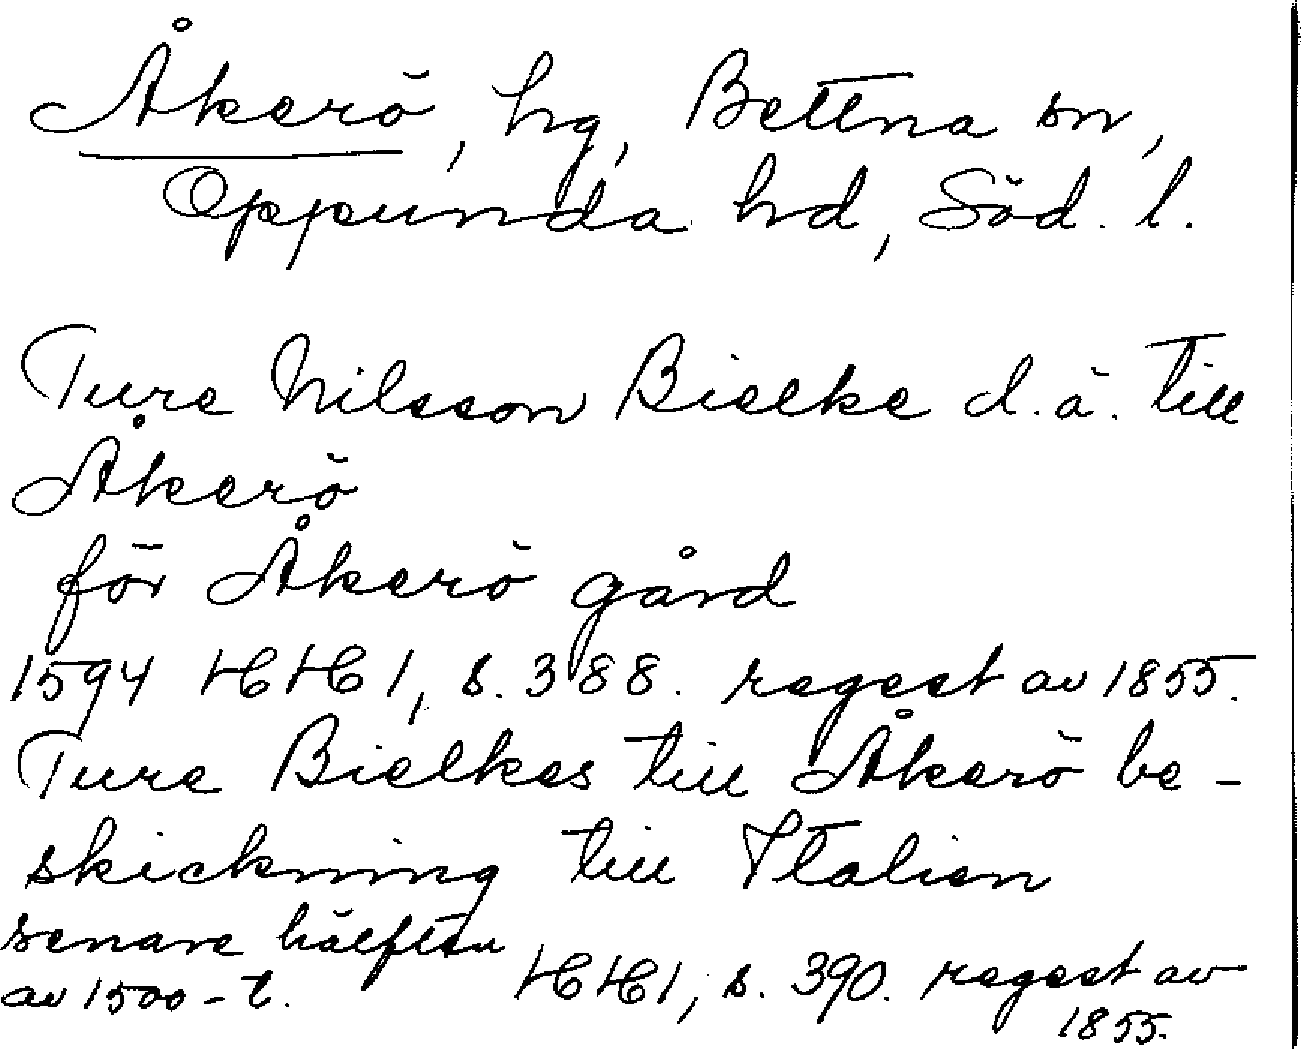 Åkerö, hg, Bettna sn,
Oppunda hd, Söd. l.
Ture Nilsson Bielke d.ä. till
Åkerö
för Åkerö gård
1594 HH 1, s. 388. regest av 1855.
Ture Bielkes till Åkerö be-
skickning till Italien
senare hälften
av 1500-t. HH1, s. 390. regest av
1855.